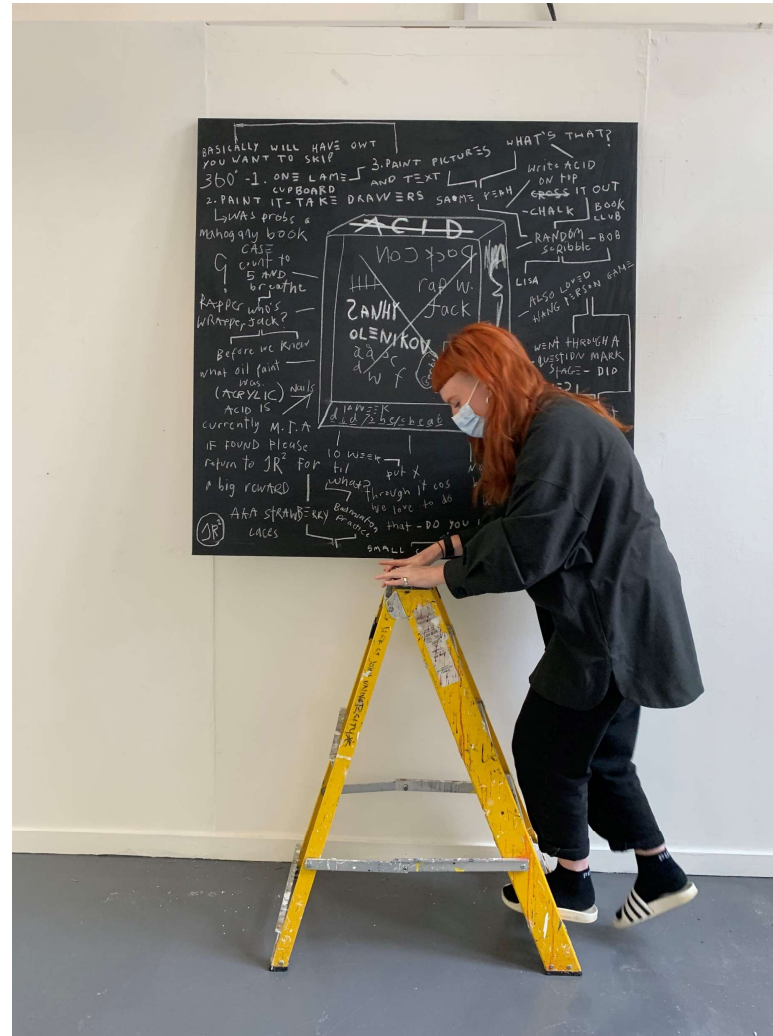 BASICALLY WILL HAVE OWT
YOU WANT TO SKIP
360° -1. ONE LAME
CUPBOARD
2. PAINT IT-TAKE DRAWERS
3. PAINT PICTURES
AND TEXT
WHAT'S THAT?
SAME YEAH
Write ACID
ON TOP
CROSS IT OUT
-CHALK
BOOK
CLUB
RANDOM
SCRIBBLE
- BOB
LISA
ALSO LOVED
HANG PERSON GAME
WENT THROUGH A
QUESTION MARK
STAGE - DID
WAS probs a
mahogany book
CASE
count to
5 AND
breathe
RAPPER who's
WRAPPER, Jack?
Before we knew
what oil paint
was.
(ACRYLIC)
Nails
ACID IS
currently M.I.A
IF FOUND Please
return to JR² For
a big reward
AKA STRAWBERRY
LACES
JR²
ACID
rap w.
Jack
OLENIKOV
10 WEEK
til
what?
Badminton
Practice
put X
through it cos
we love to do
that - DO YOU
SMALL